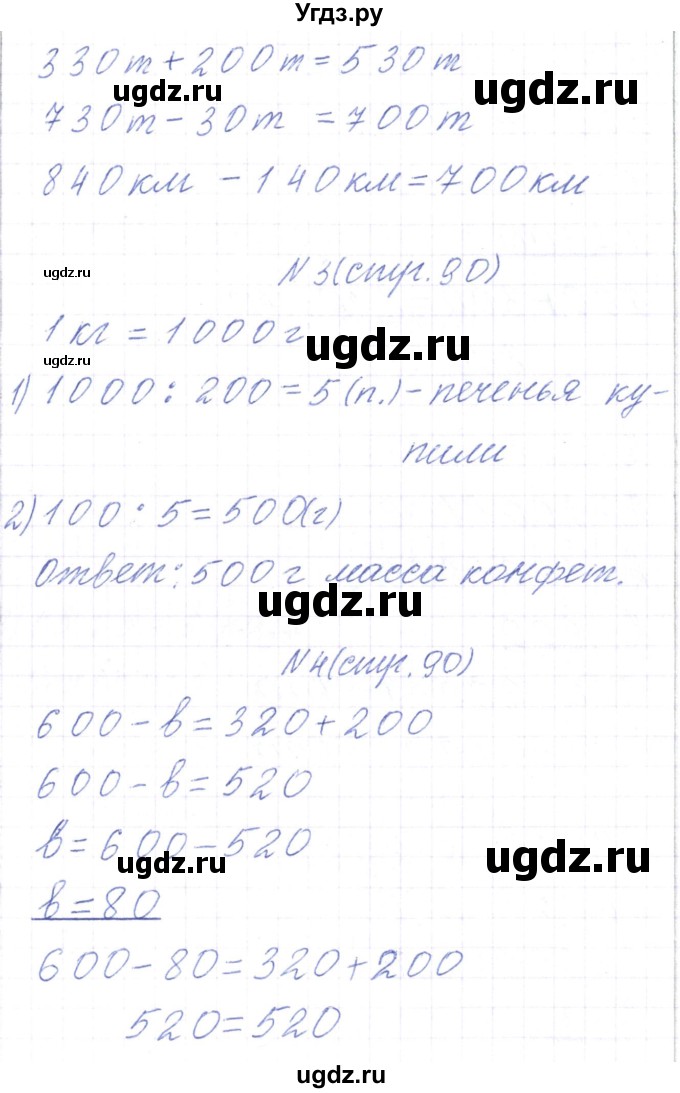 Угдз.ру
330т + 200т = 530т
ugdz.ru
ugdz.ru
730т - 30т = 700т
840км - 140км = 700км
ugdz.ru
N 3(стр. 90)
1кг = 1000г
ugdz.ru
ugdz.ru
1) 1000 : 200 = 5 (п.) - печенья ку-
пили
2) 100 · 5 = 500(г)
Ответ: 500 г масса конфет.
ugdz.ru
N 4(стр. 90)
600 - в = 320 + 200
600 - в = 520
в = 600 - 520
ugdz.ru
ugdz.ru
в = 80
600 - 80 = 320 + 200
520 = 520
ugdz.ru
ugdz.ru